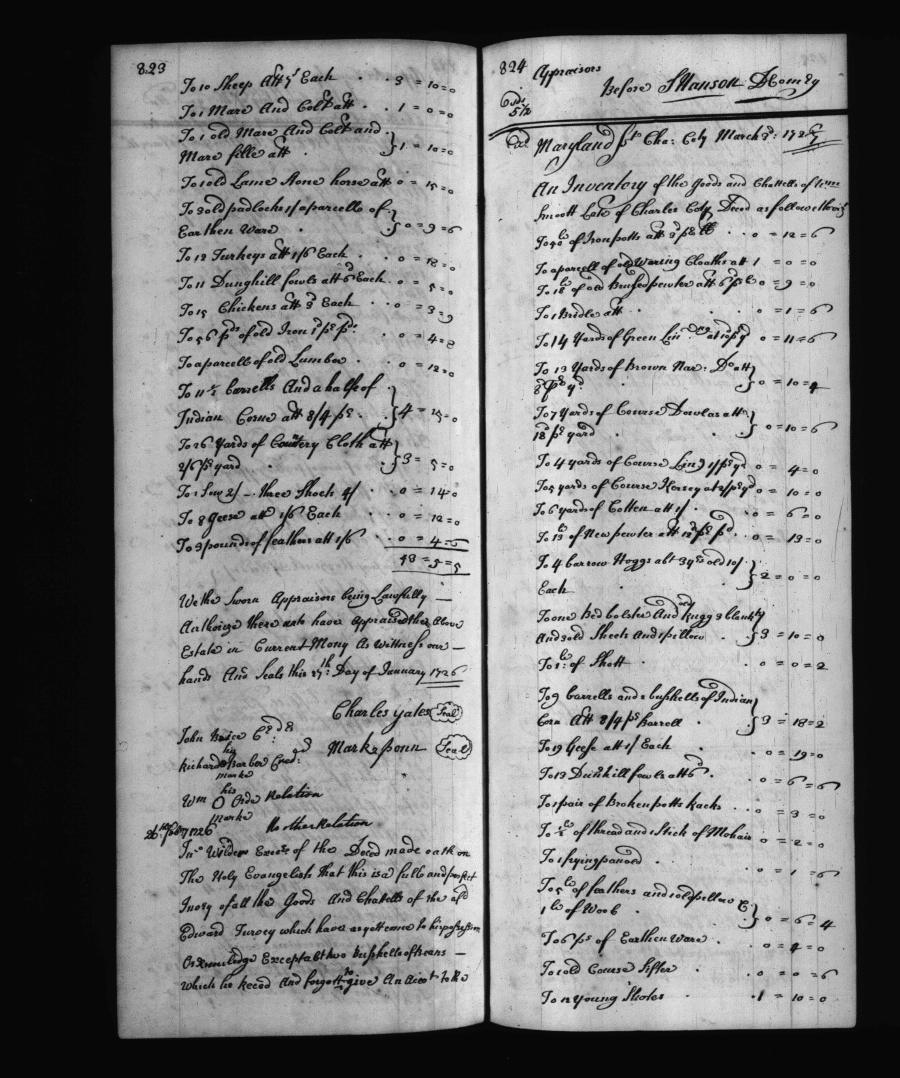 823
To 10 Sheep att 7/ Each . . 3 = 10 = 0
To 1 Mare And Colt att . . 1 = 0 = 0
To 1 old Mare And Colt and
Mare fille att . } 1 = 10 = 0
To 1 old Lame Stone horse att 0 = 15 = 0
To 3 old padlocks 1/ a parcello of
Earthen Ware . } 0 = 9 = 6
To 12 Turkeys att 1/6 Each . . 0 = 18 = 0
To 11 Dunghill fowls att 6d Each . . 0 = 5 = 0
To 15 Chickens att 3d Each . . 0 = 3 = 9
To 56 pds of old Iron 1d pr pd: . 0 = 4 = 8
To a parcello of old Lumber . . 0 = 12 = 0
To 11½ barrells And a halfe of
Indian Corne att 8/4 pr . } 4 = 15 = 0
To 26 Yards of Country Cloth att
2/6 pr yard . } 3 = 5 = 0
To 1 Sow 2/ - three Shoets 4/ . . 0 = 14 = 0
To 8 Geese att 1/6 Each . . 0 = 12 = 0
To 3 pounds of feathers att 1/6 . . 0 = 4 = 6
93 = 5 = 5
We the Sworn Appraisors being Lawfully
Authorize there unto have Appraised the Above
Estate in Current Mony As Wittness our
hands And Seals this 27th: Day of January 1726
Charles yates Seal
John Brice Cred:
Marke ponn Seal
his
Richard Barbor Cred:
marke
his
Wm O Orde Relation
marke
No other Relation
26th: Feby 1726
Jno Wilder Exectr of the Deced made oath on
The Holy Evangelists that this is a full and perfect
Invry of all the Goods And Chatells of the afd
Edward Turvey which have as yett came to his possession
Or Knowledge Except abt two bushells of beans
which he Reced And forgott to give An Accot to the
824
Appraisors
Before S Hanson D Comry
Maryland ss Cha: Coty March 3d: 1726/7
An Inventory of the Goods and Chattells of
Smoott Late of Charles Coty Deced as followeth viz
To 40lb of Iron potts att . . 0 = 12 = 6
To a parcell of old Waring Cloaths att 1 = 0 = 0
To 18lb of old Brused pewter att 6d pr lb 0 = 9 = 0
To 1 Bridle att . . 0 = 1 = 6
To 14 Yards of Green at 10d pr yd 0 = 11 = 6
To 13 Yards of Brown Nar: Do att
pr yd . } 0 = 10 = 4
To 7 Yards of Course Dowlas att
18d pr yard . } 0 = 10 = 6
To 4 yards of Course Ling 1/ pr yd 0 = 4 = 0
To 5 yards of Course Kersey at 2/ pr yd 0 = 10 = 0
To 6 yards of Cotten att 1/ . . 0 = 6 = 0
To 13lb of New pewter att 12d pr pd . 0 = 13 = 0
To 4 barrow Hoggs abt 3 yrs old 10/
Each . } 2 = 0 = 0
To one Bed bolster And Rugg 3 blanktt
And 2 old Sheets And 1 pillow . } 3 = 10 = 0
To 1lb: of Shott . . 0 = 0 = 2
To 9 barrells and 2 bushells of Indian
Corn Att 8/4 pr barrell . } 3 = 18 = 2
To 19 Geese at 1/ Each . . 0 = 19 = 0
To 13 Dunkhill fowls att 6d . . 0 = 6 = 6
To 1 pair of Broken potts Racks . . 0 = 3 = 0
To ½lb of thread and 1 Stick of Mohair . 0 = 2 = 0
To 1 frying pan old . . 0 = 1 = 6
To 5lb of feathers and 1 old pillow &
1lb of Woob . } 0 = 6 = 4
To 6 ps of Earthen Ware . . 0 = 4 = 0
To 1 old Course Sifter . . 0 = 0 = 6
To 12 Young Shotes . . 1 = 10 = 0